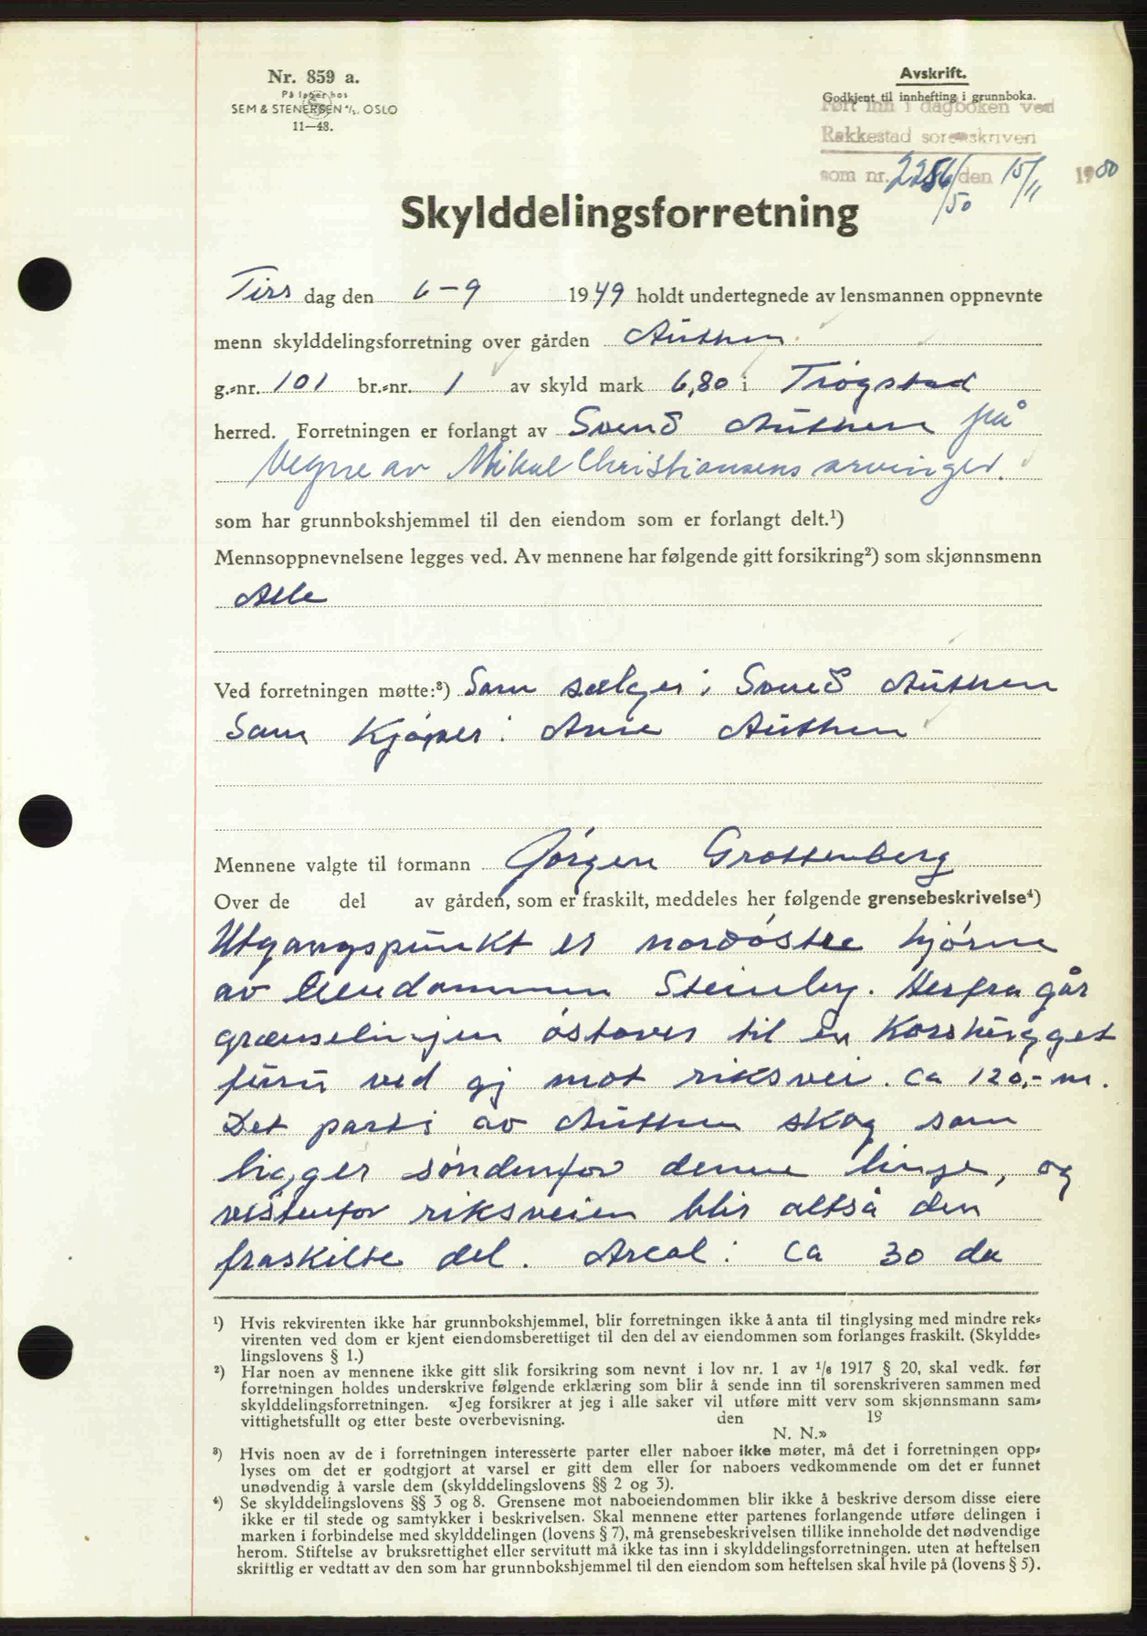 Nr. 859 a.
På lager hos
SEM & STENERSEN A/S. OSLO
11—48.
Avskrift.
Godkjent til innhefting i grunnboka.
Ført inn i dagboken ved
Rakkestad sorenskriveri
som nr. 2256/50 den 15/11 1950
Skylddelingsforretning
Tirs dag den 6-9 1949 holdt undertegnede av lensmannen oppnevnte
menn skylddelingsforretning over gården Authen
g.-nr. 101 br.-nr. 1 av skyld mark 6,80 i Trøgstad
herred. Forretningen er forlangt av Svend Authen på
Vegne av Mikal Christiansens arvinger.
som har grunnbokshjemmel til den eiendom som er forlangt delt.¹)
Mennsoppnevnelsene legges ved. Av mennene har følgende gitt forsikring²) som skjønnsmenn
Alle
Ved forretningen møtte:³) Som sælger: Svend Authen
Som Kjøper: Arne Authen
Mennene valgte til formann Jørgen Grøttenberg
Over de del av gården, som er fraskilt, meddeles her følgende grensebeskrivelse⁴)
Utgangspunkt er nordøstre hjørne
av Eiendommen Steinby. Herfra går
grænselinjen østover til en Korshugget
furu ved gj mot riksvei. ca 120,- m.
Det parti av Authen skog som
ligger søndenfor denne linje, og
vestenfor riksveien blir altså den
fraskilte del. Areal: ca 30 da
¹) Hvis rekvirenten ikke har grunnbokshjemmel, blir forretningen ikke å anta til tinglysing med mindre rek-
virenten ved dom er kjent eiendomsberettiget til den del av eiendommen som forlanges fraskilt. (Skyldde-
lingslovens § 1.)
²) Har noen av mennene ikke gitt slik forsikring som nevnt i lov nr. 1 av 1/6 1917 § 20, skal vedk. før
forretningen holdes underskrive følgende erklæring som blir å sende inn til sorenskriveren sammen med
skylddelingsforretningen. «Jeg forsikrer at jeg i alle saker vil utføre mitt verv som skjønnsmann sam-
vittighetsfullt og etter beste overbevisning. den 19
N. N.»
³) Hvis noen av de i forretningen interesserte parter eller naboer ikke møter, må det i forretningen opp-
lyses om det er godtgjort at varsel er gitt dem eller for naboers vedkommende om det er funnet
unødvendig å varsle dem (skylddelingslovens §§ 2 og 3).
⁴) Se skylddelingslovens §§ 3 og 8. Grensene mot naboeiendommen blir ikke å beskrive dersom disse eiere
ikke er til stede og samtykker i beskrivelsen. Skal mennene etter partenes forlangende utføre delingen i
marken i forbindelse med skylddelingen (lovens § 7), må grensebeskrivelsen tillike inneholde det nødvendige
herom. Stiftelse av bruksrettighet eller servitutt må ikke tas inn i skylddelingsforretningen. uten at heftelsen
skriftlig er vedtatt av den som har grunnbokshjemmel til den eiendom som heftelsen skal hvile på (lovens § 5).